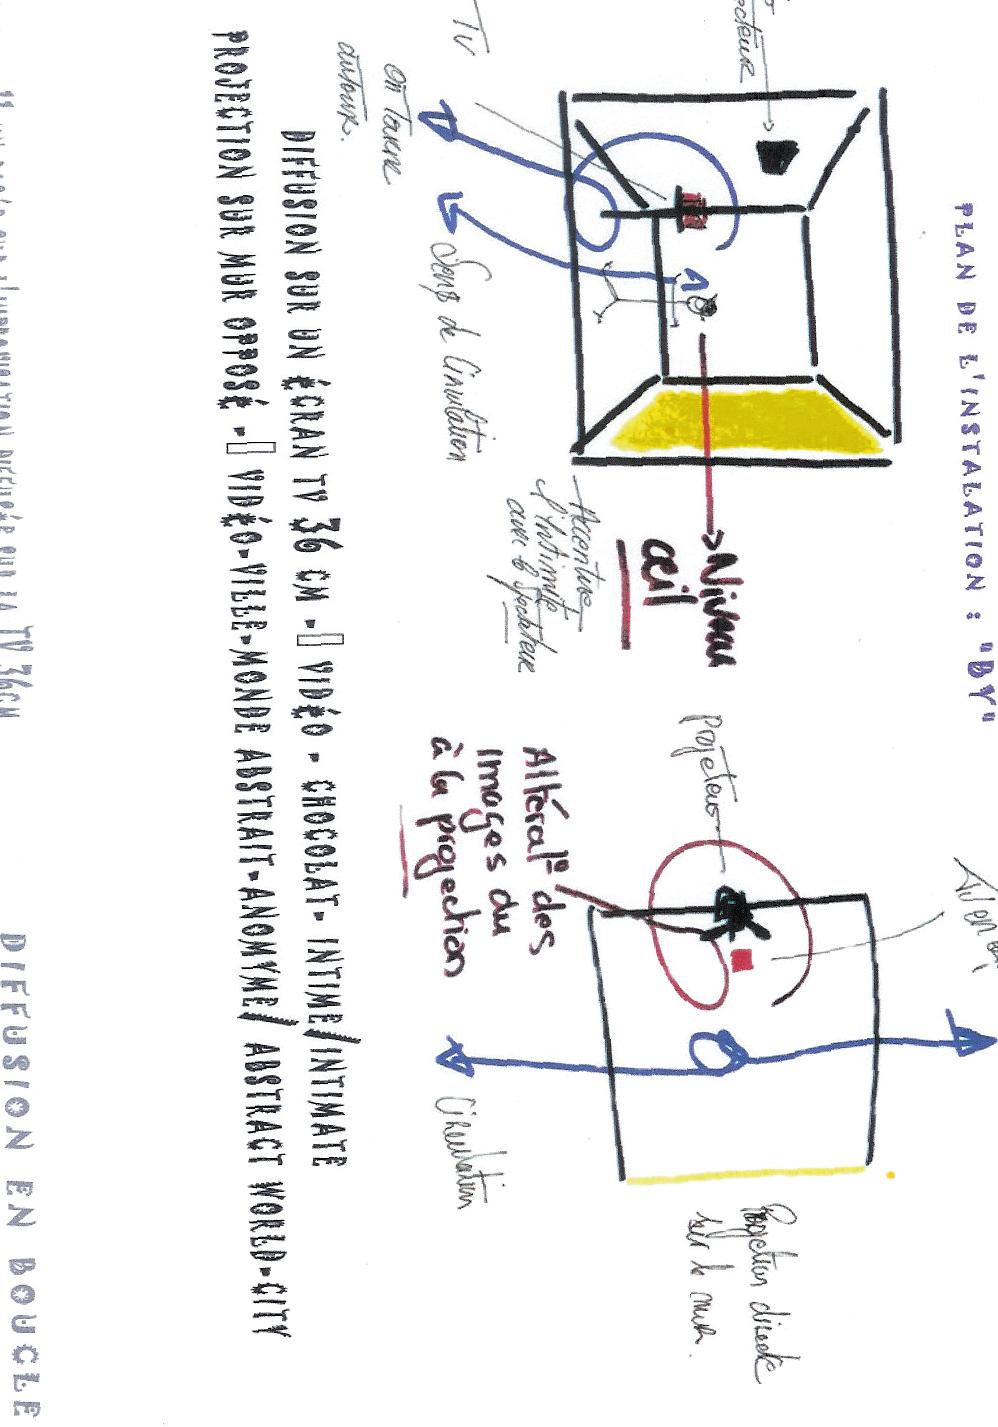 PLAN DE L'INSTALATION : "BY"
TV
on tourne
autour.
Sens de Circulation
Accentue
l'intimité
avec le spectateur
Niveau
œil
Projeteur
Altéral° des
images du
à la projection
Circulation
Projection directe
sur le mur.
DIFFUSION SUR UN ÉCRAN TV 36 CM - VIDÉO - CHOCOLAT- INTIME/INTIMATE
PROJECTION SUR MUR OPPOSÉ - VIDÉO-VILLE-MONDE ABSTRAIT-ANOMYME/ ABSTRACT WORLD-CITY
LA TV 36CM
DIFFUSION EN BOUCLE